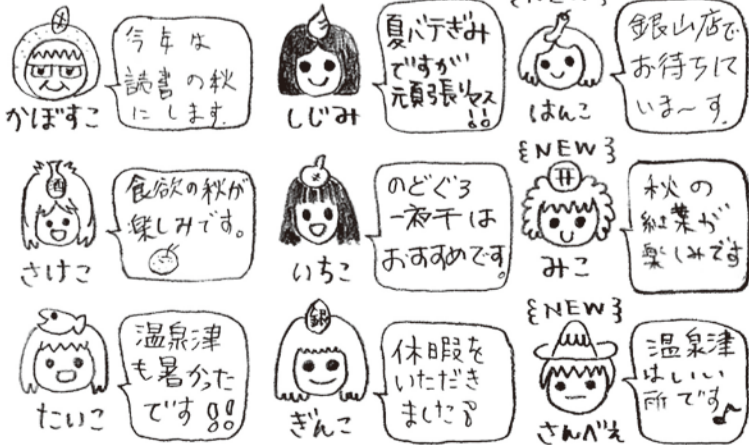 かぼすこ
今年は
読書の秋
にします。
しじみ
夏バテぎみ
ですが
頑張りマス!!
はんこ
銀山店で
お待ちして
いま〜す。
酒
さけこ
食欲の秋が
楽しみです。
いちこ
のどぐろ
一夜干は
おすすめです。
{NEW}
みこ
秋の
紅葉が
楽しみです
たいこ
温泉津
も暑かった
です!!
銀
ぎんこ
休暇を
いただき
ました!
{NEW}
さんべぇ
温泉津
はいい
所です♪